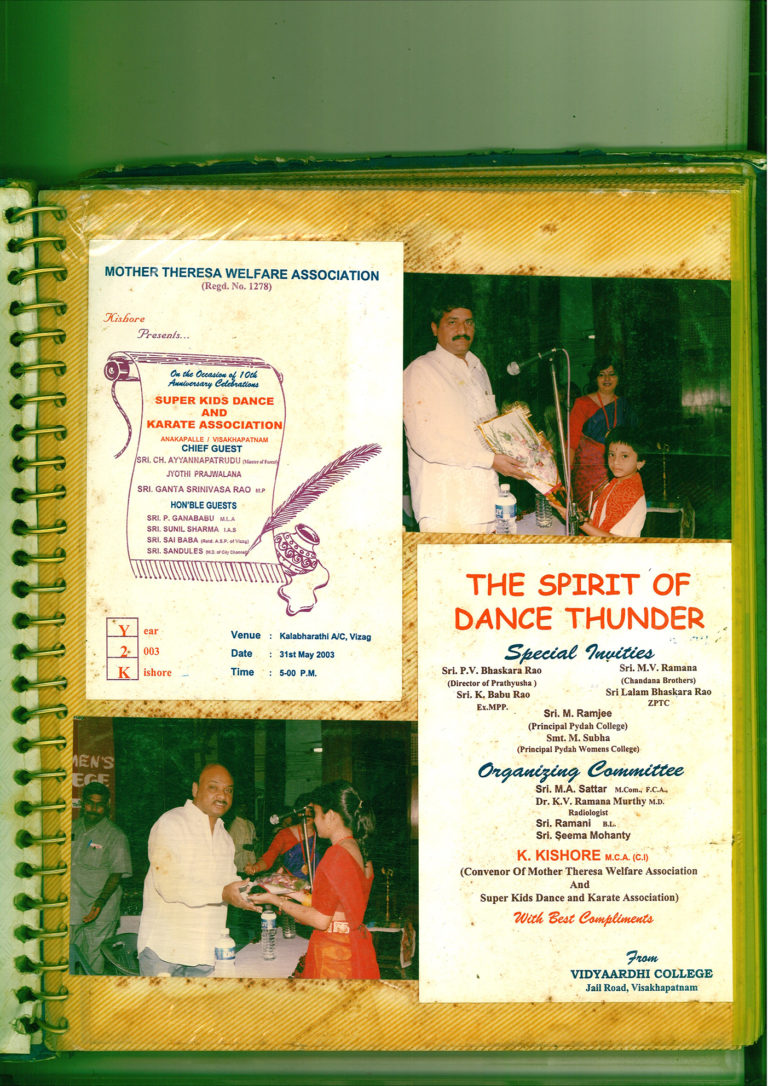 MOTHER THERESA WELFARE ASSOCIATION
(Regd. No. 1278)
Kishore
Presents...
On the Occasion of 10th
Anniversary Celebrations
SUPER KIDS DANCE
AND
KARATE ASSOCIATION
ANAKAPALLE / VISAKHAPATNAM
CHIEF GUEST
SRI. CH. AYYANNAPATRUDU (Minister of Forest)
JYOTHI PRAJWALANA
SRI. GANTA SRINIVASA RAO M.P
HON'BLE GUESTS
SRI. P. GANABABU M.L.A
SRI. SUNIL SHARMA I.A.S
SRI. SAI BABA (Retd. A.S.P. of Vizag)
SRI. SANDULES (M.D. of City Channel)
Y ear
2 003
K ishore
Venue : Kalabharathi A/C, Vizag
Date : 31st May 2003
Time : 5-00 P.M.
THE SPIRIT OF
DANCE THUNDER
Special Invities
Sri. P.V. Bhaskara Rao
(Director of Prathyusha )
Sri. K, Babu Rao
Ex.MPP.
Sri. M.V. Ramana
(Chandana Brothers)
Sri Lalam Bhaskara Rao
ZPTC
Sri. M. Ramjee
(Principal Pydah College)
Smt. M. Subha
(Principal Pydah Womens College)
Organizing Committee
Sri. M.A. Sattar M.Com., F.C.A.,
Dr. K.V. Ramana Murthy M.D.
Radiologist
Sri. Ramani B.L.
Sri. Seema Mohanty
K. KISHORE M.C.A. (C.I)
(Convenor Of Mother Theresa Welfare Association
And
Super Kids Dance and Karate Association)
With Best Compliments
From
VIDYAARDHI COLLEGE
Jail Road, Visakhapatnam
MEN'S
EGE